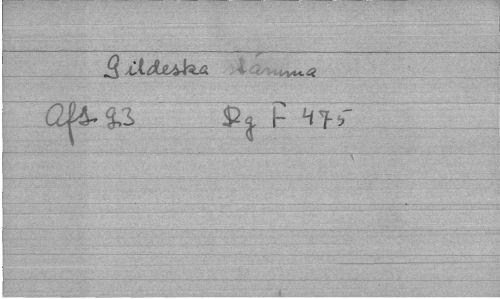 Gildeska stämma
Rg F 475